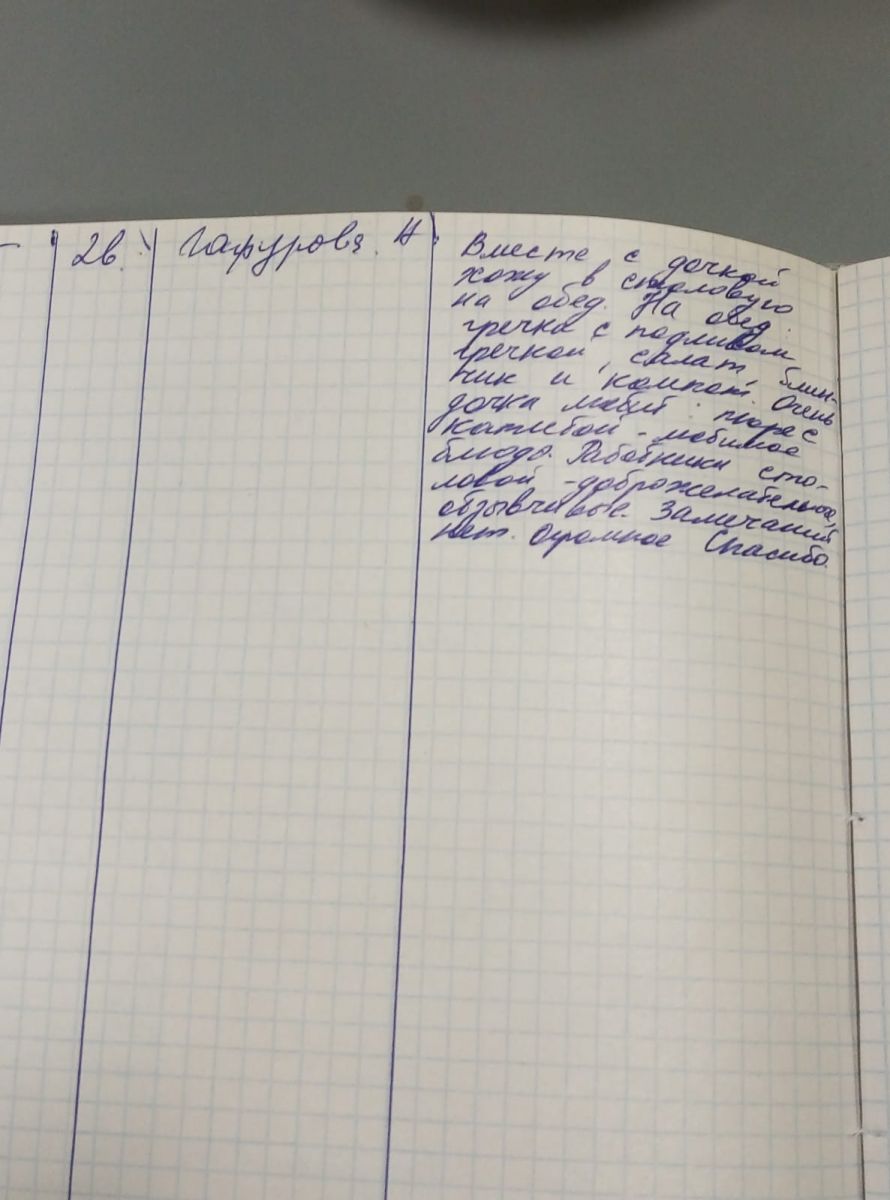 2в. Гафурова. Н
Вместе с дочкой
хожу в столовую
на обед. На обед:
гречка с подливом
гречкой, салат, блин-
чик и компот. Очень
дочка любит пюре с
котлетой - любимое
блюдо. Работники сто-
ловой - доброжелательные,
отзывчивые. Замечаний
нет. Огромное Спасибо.